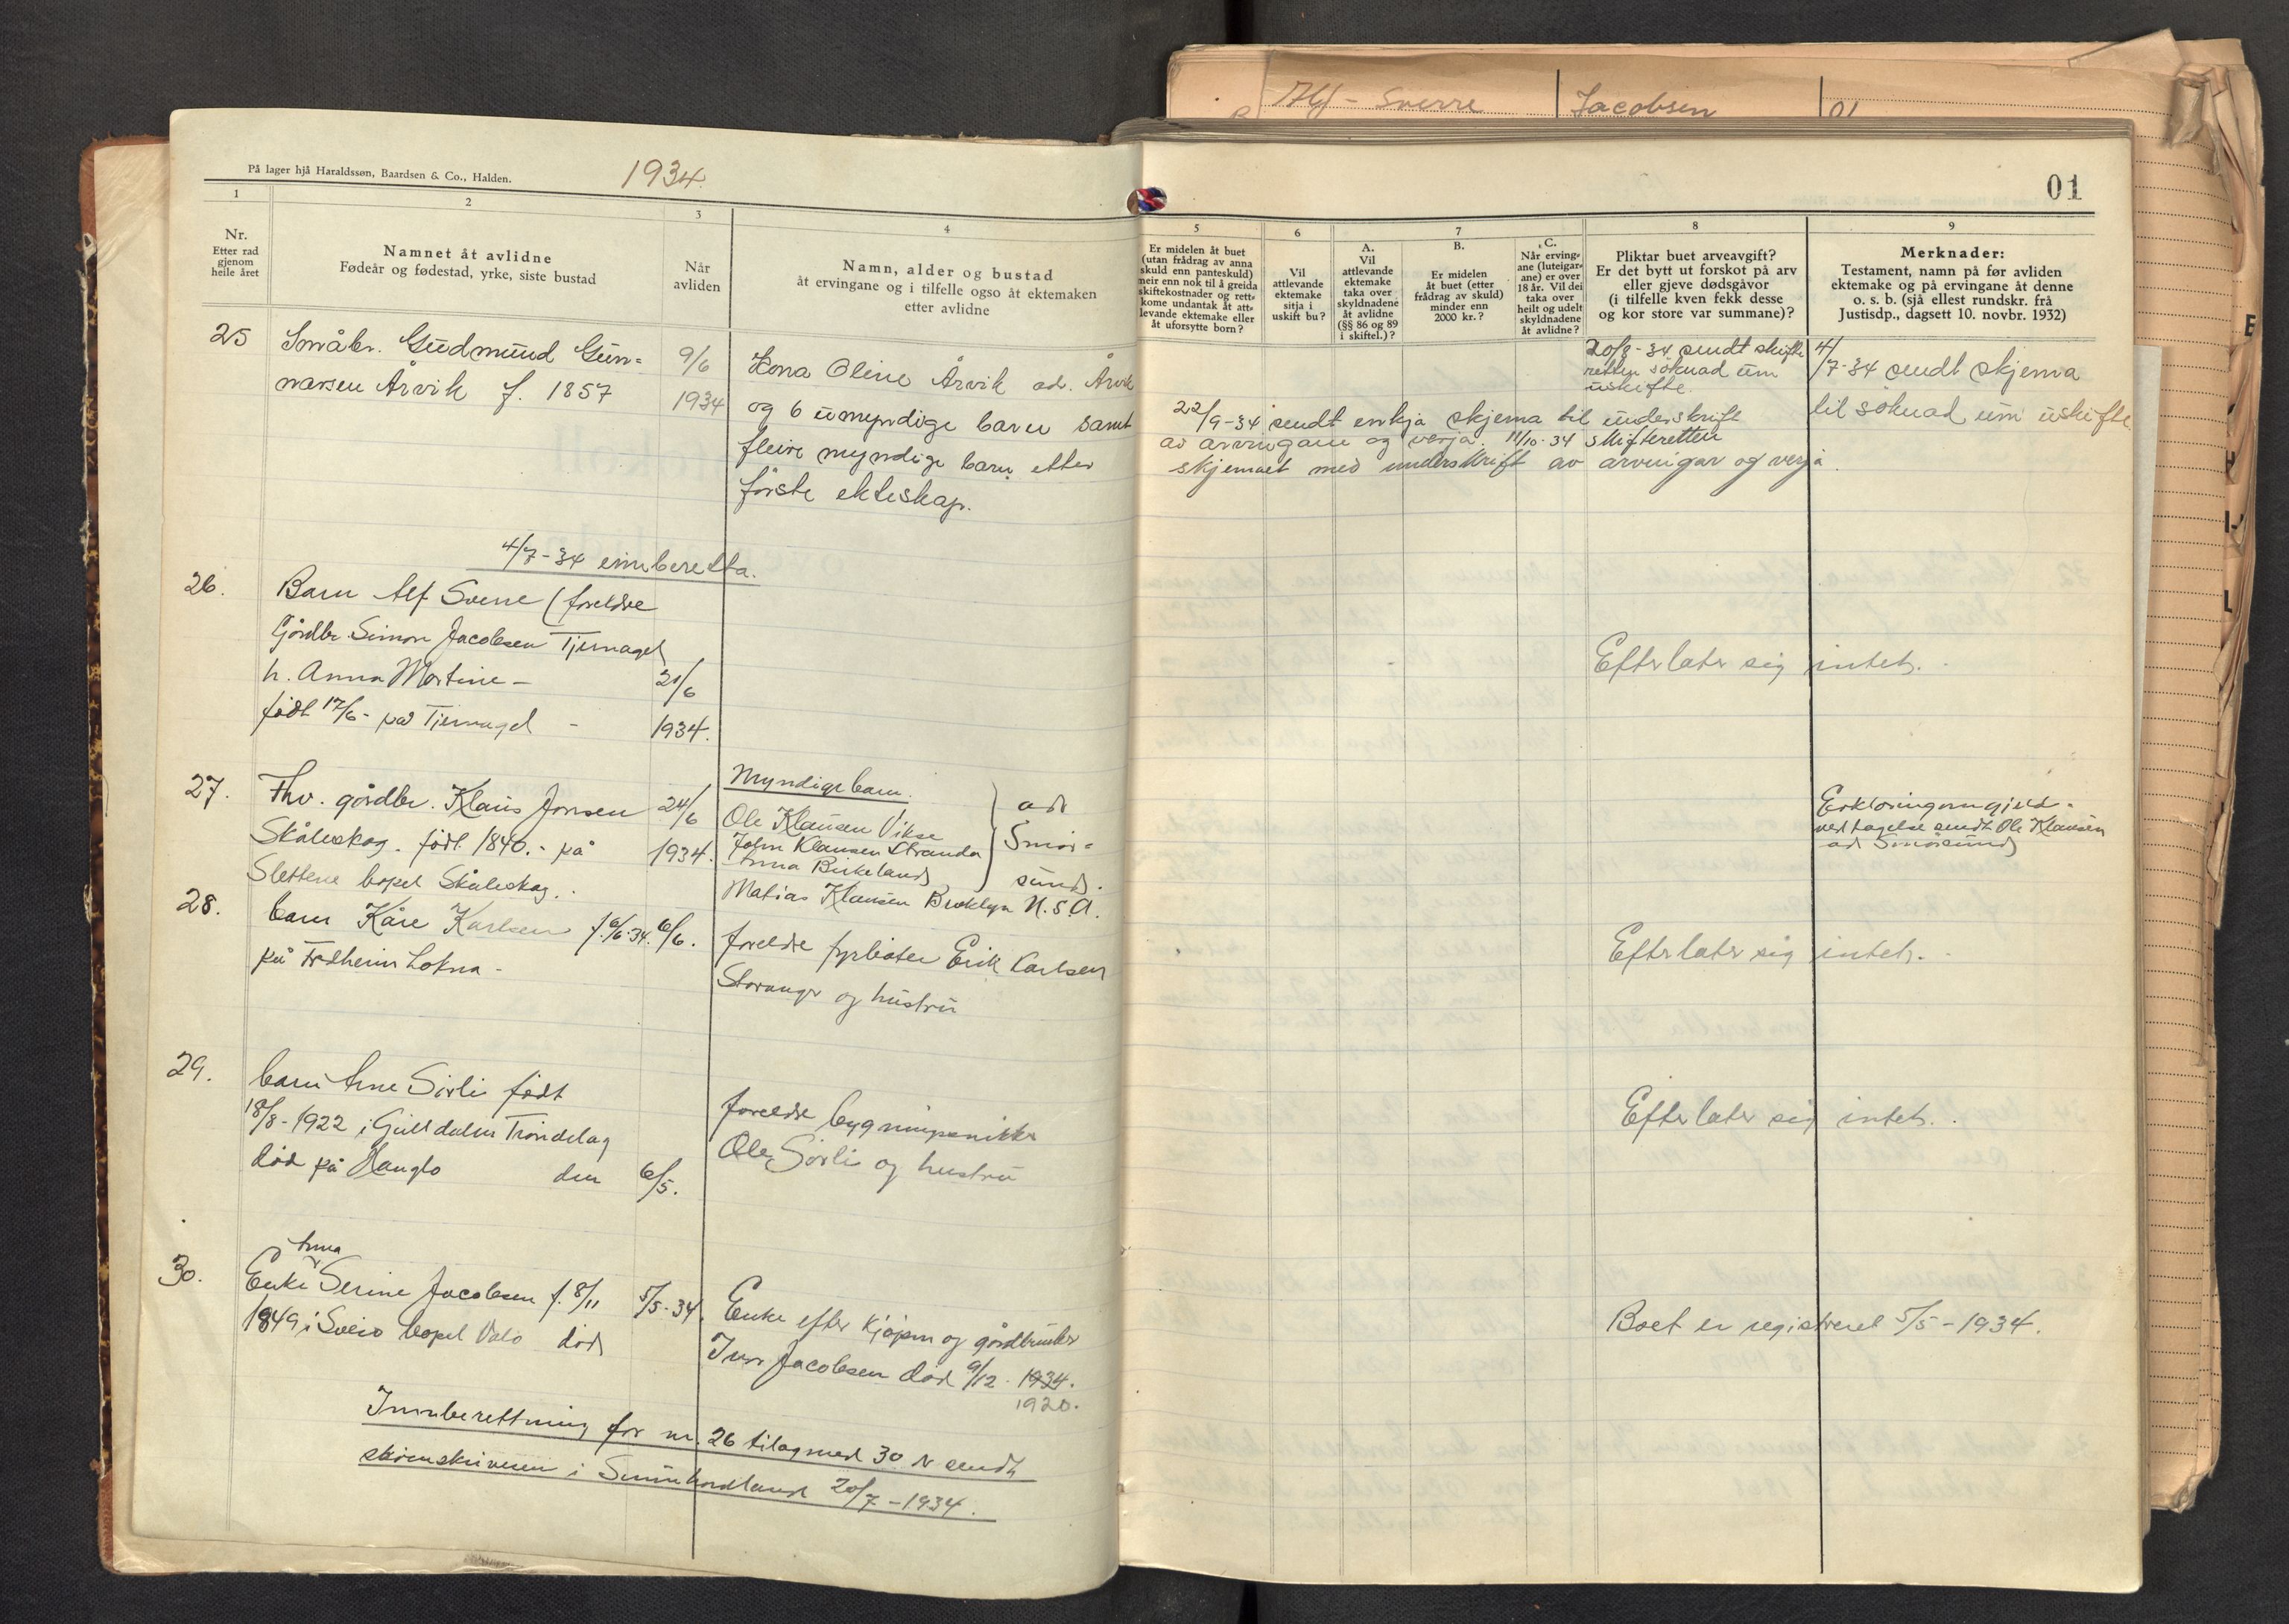 Alf - Sverre Jacobsen
På lager hjå Haraldssøn, Baardsen & Co., Halden.
1934.
01
1
2
3
4
5
6
7
8
9
Nr.
Etter rad
gjenom
heile året
Namnet åt avlidne
Fødeår og fødestad, yrke, siste bustad
Når
avliden
Namn, alder og bustad
åt ervingane og i tilfelle ogso åt ektemaken
etter avlidne
Er midelen åt buet
(utan frådrag av anna
skuld enn panteskuld)
meir enn nok til å greida
skiftekostnader og rett-
kome undantak åt att-
levande ektemake eller
åt uforsytte born?
Vil
attlevande
ektemake
sitja i
uskift bu?
A.
Vil
attlevande
ektemake
taka over
skyldnadene
åt avlidne
(§§ 86 og 89
i skiftel.)?
B.
Er midelen
åt buet (etter
frådrag av skuld)
minder enn
2000 kr.?
C.
Når erving-
ane (luteigar-
ane) er over
18 år. Vil dei
taka over
heilt og udelt
skyldnadene
åt avlidne?
Pliktar buet arveavgift?
Er det bytt ut forskot på arv
eller gjeve dødsgåvor
(i tilfelle kven fekk desse
og kor store var summane)?
Merknader:
Testament, namn på før avliden
ektemake og på ervingane åt denne
o. s. b. (sjå ellest rundskr. frå
Justisdp., dagsett 10. novbr. 1932)
25
Småbr. Gudmund Gun-
narsen Årvik f. 1857
9/6
1934
Kona Oline Årvik ad. Årvik
og 6 umyndige barn samt
fleire myndige barn etter
förste ekteskap.
20/8-34 sendt skifte
retten söknad um
uskifte.
4/7-34 sendt skjema
til söknad um uskifte.
22/9-34 sendt enkja skjema til underskrift
av arvingane og verja. 11/10-34 skifteretten
skjemaet med underskrift av arvingar og verja.
4/7-34 innberetta.
26.
Barn Alf Sverre (foreldre
Gårdbr. Simon Jacobsen Tjernagel
h. Anna Martine -
født 17/6 - på Tjernagel -
21/6
1934.
Efterlater sig intet.
27.
Fhv. gårdbr. Klaus Jonsen
Skåleskog. født 1840. - på
Slettene bopel Skåleskog.
24/6
1934.
Myndige barn.
Ole Klausen Vikse
John Klausen Stranda
Anna Birkeland
adr
Smör-
sund.
Matias Klausen Brooklyn U.S.A.
Erklöring om gjeld-
vedtagelse sendt Ole Klausen
ad Smörsund
28.
barn Kåre Karlsen f. 6/6.34. 6/6.
på Fredheim Lokna -
foreldre fyrböter Erik Karlsen
Stavanger og hustru
Efterlater sig intet.
29.
barn Arne Sörli født
18/8-1922 i Guldalen Tröndelag
död på Hauglo den 6/5.
foreldre bygningsnikker
Ole Sörli og hustru
Efterlater sig intet.
30.
Anna
Enke Serine Jacobsen f. 8/11
1849 i Sveio bopel Valo död
5/5-34.
Enke efter Kjöpm og gårdbruker
Iver Jacobsen död 9/12 1934.
1920.
Boet er registreret 5/5-1934.
Innberettning for nr. 26 tilogmed 30 sendt
skrivenen i Sunnhordland 20/7-1934.